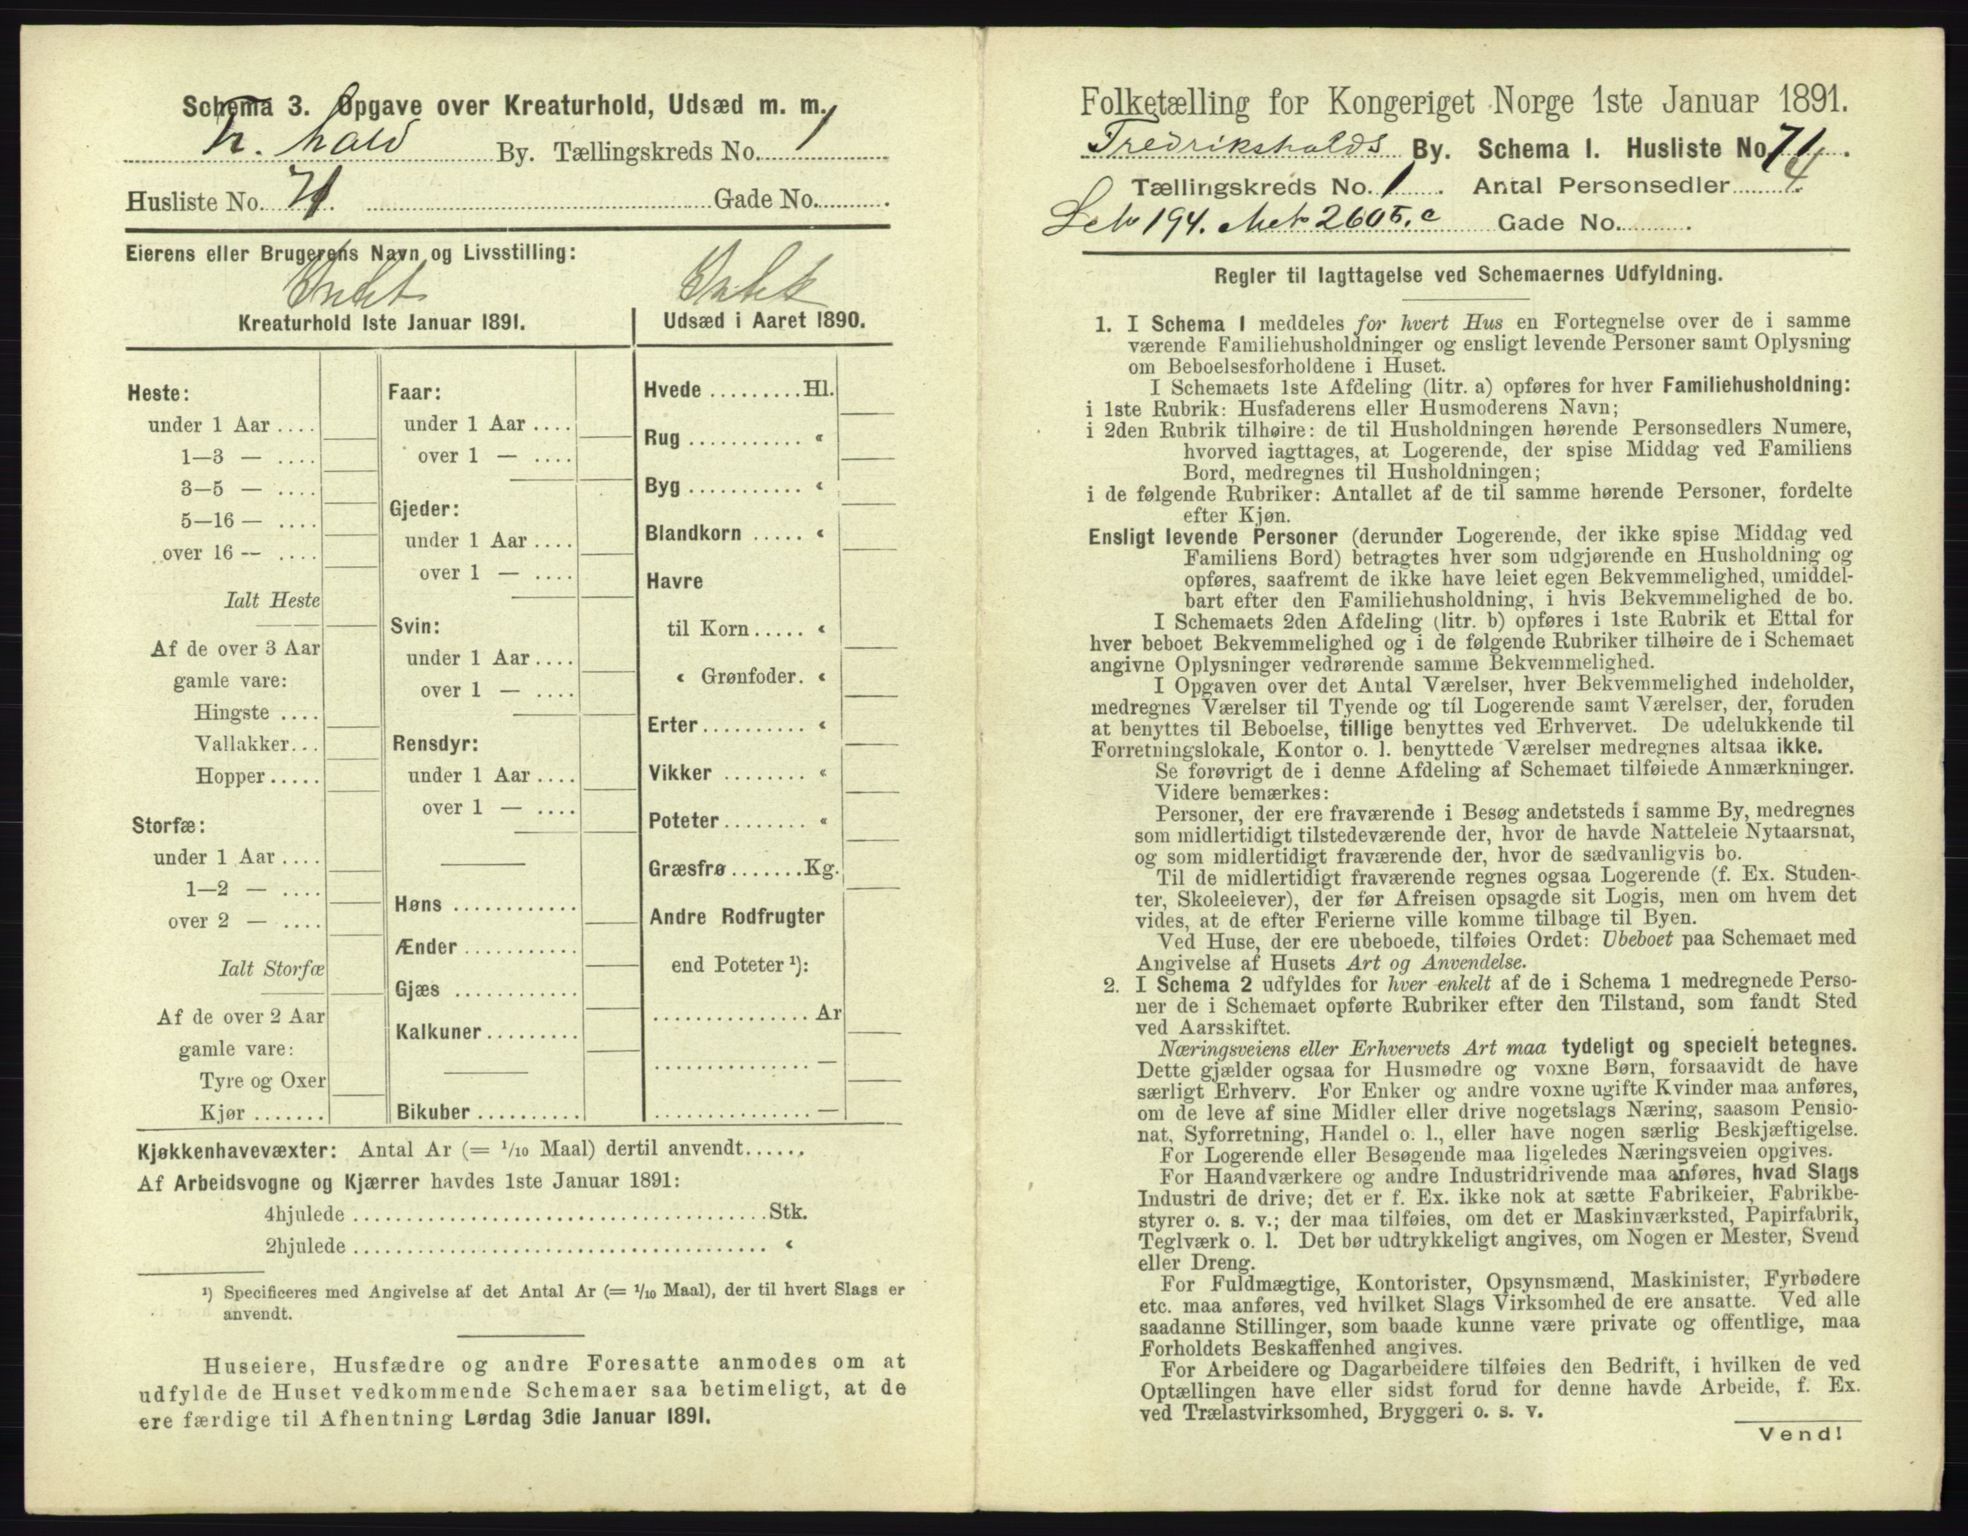 Schema 3. Opgave over Kreaturhold, Udsæd m. m.
Fr. hald By. Tællingskreds No. 1
Husliste No. 71. Gade No.
Eierens eller Brugerens Navn og Livsstilling:
Kreaturhold 1ste Januar 1891.
Heste:
under 1 Aar ....
1—3 — ....
3—5 — ....
5—16 — ....
over 16 — ....
Ialt Heste
Af de over 3 Aar
gamle vare:
Hingste ....
Vallakker...
Hopper .....
Storfæ:
under 1 Aar ....
1—2 — ....
over 2 — ....
Ialt Storfæ
Af de over 2 Aar
gamle vare:
Tyre og Oxer
Kjør .......
Faar:
under 1 Aar ....
over 1 — ....
Gjeder:
under 1 Aar ....
over 1 — ....
Svin:
under 1 Aar ....
over 1 — ....
Rensdyr:
under 1 Aar ....
over 1 — ....
Høns ............
Ænder ............
Gjæs ............
Kalkuner .........
Bikuber ..........
Udsæd i Aaret 1890.
Hvede ......... Hl.
Rug ........... «
Byg ........... «
Blandkorn ..... «
Havre
til Korn ..... «
« Grønfoder. «
Erter .......... «
Vikker ........ «
Poteter ........ «
Græsfrø ....... Kg.
Andre Rodfrugter
end Poteter ¹):
............... Ar
............... —
............... —
Kjøkkenhavevæxter: Antal Ar (= 1/10 Maal) dertil anvendt......
Af Arbeidsvogne og Kjærrer havdes 1ste Januar 1891:
4hjulede ..................................... Stk.
2hjulede ..................................... «
¹) Specificeres med Angivelse af det Antal Ar (= 1/10 Maal), der til hvert Slags er
anvendt.
Huseiere, Husfædre og andre Foresatte anmodes om at
udfylde de Huset vedkommende Schemaer saa betimeligt, at de
ere færdige til Afhentning Lørdag 3die Januar 1891.
Folketælling for Kongeriget Norge 1ste Januar 1891.
Fredrikshalds By. Schema I. Husliste No. 71.
Tællingskreds No. 1. Antal Personsedler 4.
194. 2605. c Gade No.
Regler til Iagttagelse ved Schemaernes Udfyldning.
1. I Schema 1 meddeles for hvert Hus en Fortegnelse over de i samme
værende Familiehusholdninger og ensligt levende Personer samt Oplysning
om Beboelsesforholdene i Huset.
I Schemaets 1ste Afdeling (litr. a) opføres for hver Familiehusholdning:
i 1ste Rubrik: Husfaderens eller Husmoderens Navn;
i 2den Rubrik tilhøire: de til Husholdningen hørende Personsedlers Numere,
hvorved iagttages, at Logerende, der spise Middag ved Familiens
Bord, medregnes til Husholdningen;
i de følgende Rubriker: Antallet af de til samme hørende Personer, fordelte
efter Kjøn.
Ensligt levende Personer (derunder Logerende, der ikke spise Middag ved
Familiens Bord) betragtes hver som udgjørende en Husholdning og
opføres, saafremt de ikke have leiet egen Bekvemmelighed, umiddel-
bart efter den Familiehusholdning, i hvis Bekvemmelighed de bo.
I Schemaets 2den Afdeling (litr. b) opføres i 1ste Rubrik et Ettal for
hver beboet Bekvemmelighed og i de følgende Rubriker tilhøire de i Schemaet
angivne Oplysninger vedrørende samme Bekvemmelighed.
I Opgaven over det Antal Værelser, hver Bekvemmelighed indeholder,
medregnes Værelser til Tyende og til Logerende samt Værelser, der, foruden
at benyttes til Beboelse, tillige benyttes ved Erhvervet. De udelukkende til
Forretningslokale, Kontor o. l. benyttede Værelser medregnes altsaa ikke.
Se forøvrigt de i denne Afdeling af Schemaet tilføiede Anmærkninger.
Videre bemærkes:
Personer, der ere fraværende i Besøg andetsteds i samme By, medregnes
som midlertidigt tilstedeværende der, hvor de havde Natteleie Nytaarsnat,
og som midlertidigt fraværende der, hvor de sædvanligvis bo.
Til de midlertidigt fraværende regnes ogsaa Logerende (f. Ex. Studen-
ter, Skoleelever), der før Afreisen opsagde sit Logis, men om hvem det
vides, at de efter Ferierne ville komme tilbage til Byen.
Ved Huse, der ere ubeboede, tilføies Ordet: Ubeboet paa Schemaet med
Angivelse af Husets Art og Anvendelse.
2. I Schema 2 udfyldes for hver enkelt af de i Schema 1 medregnede Perso-
ner de i Schemaet opførte Rubriker efter den Tilstand, som fandt Sted
ved Aarsskiftet.
Næringsveiens eller Erhvervets Art maa tydeligt og specielt betegnes.
Dette gjælder ogsaa for Husmødre og voxne Børn, forsaavidt de have
særligt Erhverv. For Enker og andre voxne ugifte Kvinder maa anføres,
om de leve af sine Midler eller drive nogetslags Næring, saasom Pensio-
nat, Syforretning, Handel o. l., eller have nogen særlig Beskjæftigelse.
For Logerende eller Besøgende maa ligeledes Næringsveien opgives.
For Haandværkere og andre Industridrivende maa anføres, hvad Slags
Industri de drive; det er f. Ex. ikke nok at sætte Fabrikeier, Fabrikbe-
styrer o. s. v.; der maa tilføies, om det er Maskinværksted, Papirfabrik,
Teglværk o. l. Det bør udtrykkeligt angives, om Nogen er Mester, Svend
eller Dreng.
For Fuldmægtige, Kontorister, Opsynsmænd, Maskinister, Fyrbødere
etc. maa anføres, ved hvilket Slags Virksomhed de ere ansatte. Ved alle
saadanne Stillinger, som baade kunne være private og offentlige, maa
Forholdets Beskaffenhed angives.
For Arbeidere og Dagarbeidere tilføies den Bedrift, i hvilken de ved
Optællingen have eller sidst forud for denne havde Arbeide, f. Ex.
ved Trælastvirksomhed, Bryggeri o. s. v.
Vend!